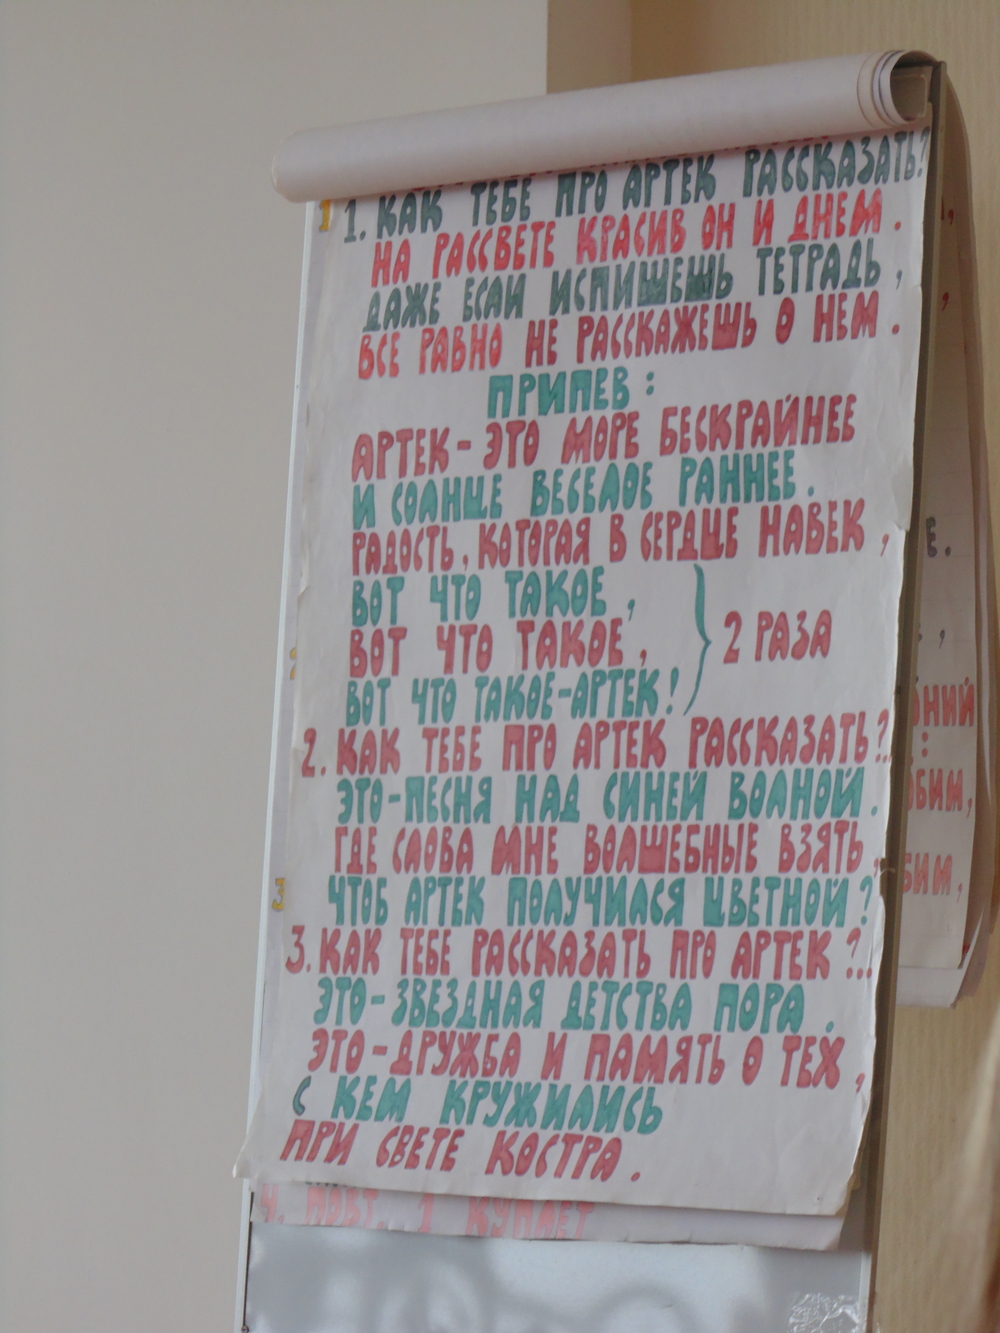 1. КАК ТЕБЕ ПРО АРТЕК РАССКАЗАТЬ?
НА РАССВЕТЕ КРАСИВ ОН И ДНЕМ.
ДАЖЕ ЕСЛИ ИСПИШЕШЬ ТЕТРАДЬ,
ВСЕ РАВНО НЕ РАССКАЖЕШЬ О НЕМ.
ПРИПЕВ:
АРТЕК - ЭТО МОРЕ БЕСКРАЙНЕЕ
И СОЛНЦЕ ВЕСЕЛОЕ РАННЕЕ.
РАДОСТЬ, КОТОРАЯ В СЕРДЦЕ НАВЕК,
ВОТ ЧТО ТАКОЕ,
ВОТ ЧТО ТАКОЕ,
ВОТ ЧТО ТАКОЕ-АРТЕК!
} 2 РАЗА
2. КАК ТЕБЕ ПРО АРТЕК РАССКАЗАТЬ?..
ЭТО-ПЕСНЯ НАД СИНЕЙ ВОЛНОЙ.
ГДЕ СЛОВА МНЕ ВОЛШЕБНЫЕ ВЗЯТЬ,
ЧТОБ АРТЕК ПОЛУЧИЛСЯ ЦВЕТНОЙ?
3. КАК ТЕБЕ РАССКАЗАТЬ ПРО АРТЕК?..
ЭТО-ЗВЕЗДНАЯ ДЕТСТВА ПОРА.
ЭТО-ДРУЖБА И ПАМЯТЬ О ТЕХ,
С КЕМ КРУЖИЛИСЬ
ПРИ СВЕТЕ КОСТРА.
4. ПОВТ. 1 КУПЛЕТ